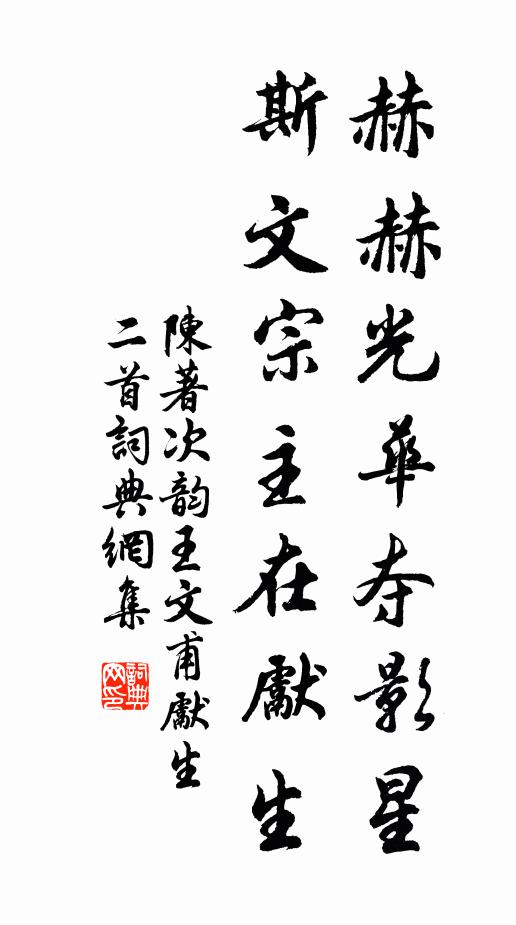 赫赫光華夺影星
斯文宗主在獻生
陳著次韵王文甫獻生
二首詞典網集
詞典网印